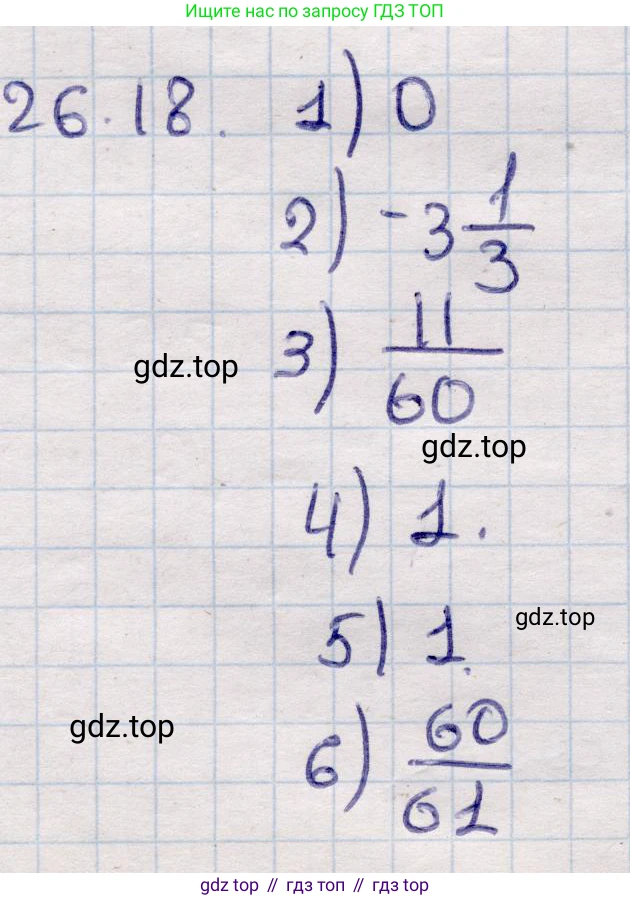 Ищите нас по запросу ГДЗ ТОП
26.18. 1) 0
2) -3 1/3
3) 11/60
gdz.top
gdz.top
4) 1.
gdz.top
5) 1.
gdz.top
6) 60/61
gdz top // гдз топ // gdz.top